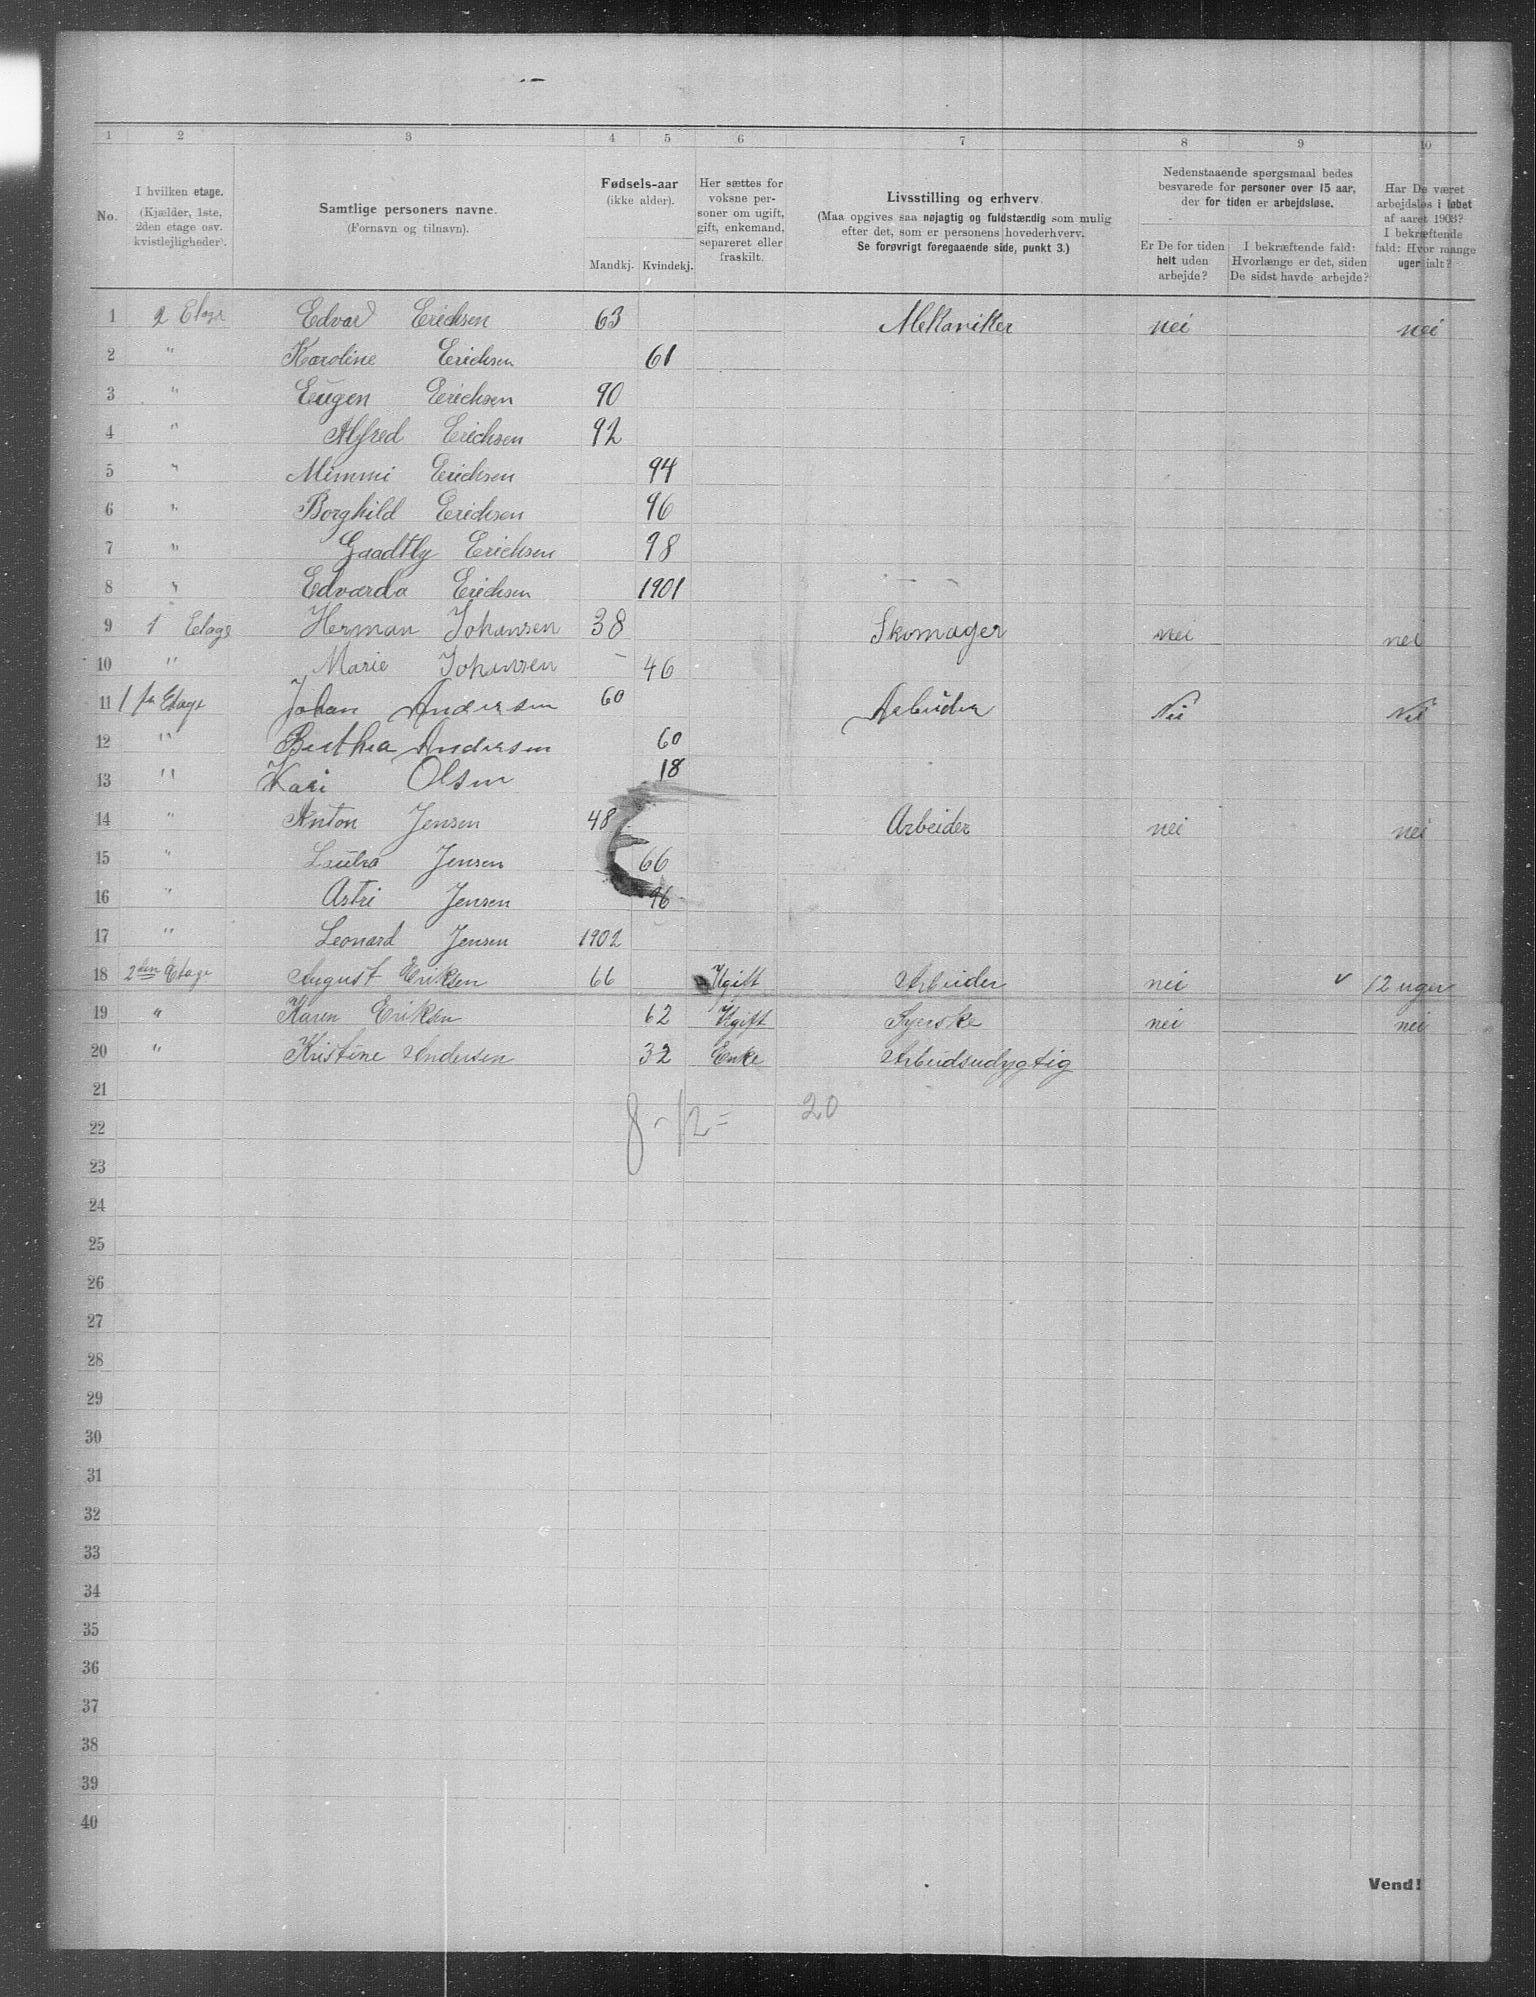 1 2 3 4 5 6 7 8 9 10
No.
I hvilken etage.
(Kjælder, 1ste,
2den etage osv.
kvistlejligheder).
Samtlige personers navne.
(Fornavn og tilnavn).
Fødsels-aar
(ikke alder).
Mandkj. Kvindekj.
Her sættes for
voksne per-
soner om ugift,
gift, enkemand,
separeret eller
fraskilt.
Livsstilling og erhverv.
(Maa opgives saa nøjagtig og fuldstærdig som mulig
efter det, som er personens hovederhverv.
Se forøvrigt foregaaende side, punkt 3.)
Nedenstaaende spørgsmaal bedes
besvarede for personer over 15 aar,
der for tiden er arbejdsløse.
Er De for tiden
helt uden
arbejde?
I bekræftende fald:
Hvorlænge er det, siden
De sidst havde arbejde?
Har De været
arbejdsløs i løbet
af aaret 1903?
I bekræftende
fald: Hvor mange
uger ialt?
1 2 Etage Edvard Erichsen 63 Mekaniker nei nei
2 " Karoline Erichsen 61
3 " Eugen Erichsen 90
4 " Alfred Erichsen 92
5 " Mimmi Erichsen 94
6 " Borghild Erichsen 96
7 " Erichsen 98
8 " Edvarda Erichsen 1901
9 1 Etage Herman Johansen 38 Skomager nei nei
10 " Marie Johansen 46
11 1 Etage Johan Andersen 60 Arbeider Nei Nei
12 " Berthea Andersen 60
13 " Kari Olsen 18
14 " Anton Jensen 48 Arbeider nei nei
15 " Jensen 66
16 " Astri Jensen 96
17 " Leonard Jensen 1902
18 2den Etage August Eriksen 66 Ugift Arbeider nei v 12 uger
19 " Karen Eriksen 62 Ugift Syerske nei nei
20 " Kristine Andersen 32 Enke Arbeidsudygtig
21
8 - 12 = 20
22
23
24
25
26
27
28
29
30
31
32
33
34
35
36
37
38
39
40
Vend!